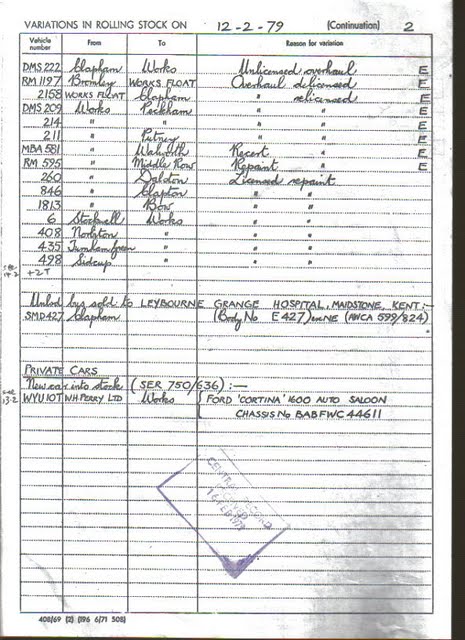 VARIATIONS IN ROLLING STOCK ON 12-2-79 (Continuation) 2
Vehicle number From To Reason for variation
DMS 222 Clapham Works Unlicensed overhaul E
RM 1197 Bromley WORKS FLOAT Overhaul delicensed E
2158 WORKS FLOAT Clapham " relicensed E
DMS 209 Works Peckham " " E
214 " " " " E
211 " Putney " " E
MBA 581 " Walworth Recert " E
RM 595 " Middle Row Repaint " E
260 " Dalston Licensed repaint
846 " Clapton " "
1813 " Bow " "
6 Stockwell Works " "
408 Norbiton " " "
435 Turnham Green " " "
498 Sidcup " " "
+2T
Unlicd bus sold to LEYBOURNE GRANGE HOSPITAL, MAIDSTONE, KENT:-
SMD427 Clapham (Body No E427) (AWCA 599/824)
PRIVATE CARS
New car into stock (SER 750/636) :—
13.2
WYU 10T W.H PERRY LTD Works { FORD 'CORTINA' 1600 AUTO SALOON
CHASSIS No BABFWC 44611
CENTRAL RECORD
16 FEB 1979
408/69 (2) (196 6/71 508)